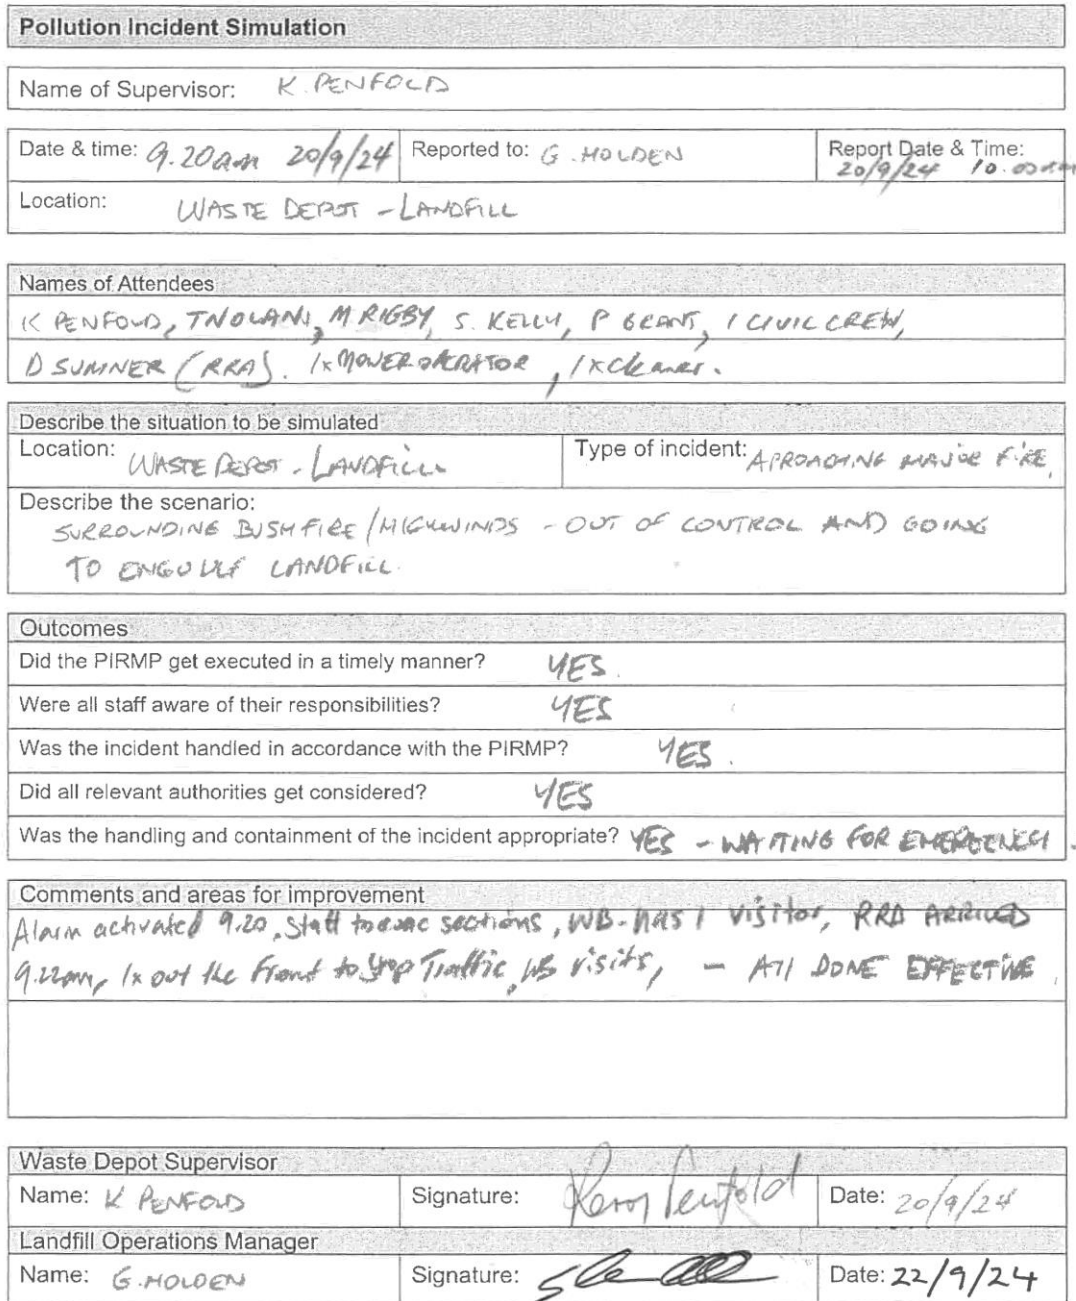 Pollution Incident Simulation
Name of Supervisor: K. PENFOLD
Date & time: 9.20am 20/9/24 Reported to: G. HOLDEN Report Date & Time: 20/9/24 10.00am
Location: WASTE DEPOT - LANDFILL
Names of Attendees
K PENFOLD, T NOLANS, M RIGBY, S. KELLY, P GRANT, 1 CIVIC CREW,
D SUMNER (RRA). 1x MOWER OPERATOR, 1x cleaner.
Describe the situation to be simulated
Location: WASTE DEPOT - LANDFILL Type of incident: APROACHING MAJOR FIRE,
Describe the scenario:
SURROUNDING BUSHFIRE/HIGHWINDS - OUT OF CONTROL AND GOING
TO ENGULF LANDFILL.
Outcomes
Did the PIRMP get executed in a timely manner? YES.
Were all staff aware of their responsibilities? YES
Was the incident handled in accordance with the PIRMP? YES.
Did all relevant authorities get considered? YES
Was the handling and containment of the incident appropriate? YES - WAITING FOR EMERGENCY.
Comments and areas for improvement
Alarm activated 9.20, Staff to evac sections, WB-has 1 visitor, RRA ARRIVED
9.22am, 1x out the front to stop Traffic, WB visits, - All DONE EFFECTIVE.
Waste Depot Supervisor
Name: K PENFOLD Signature: Penfold Date: 20/9/24
Landfill Operations Manager
Name: G. HOLDEN Signature: Date: 22/9/24